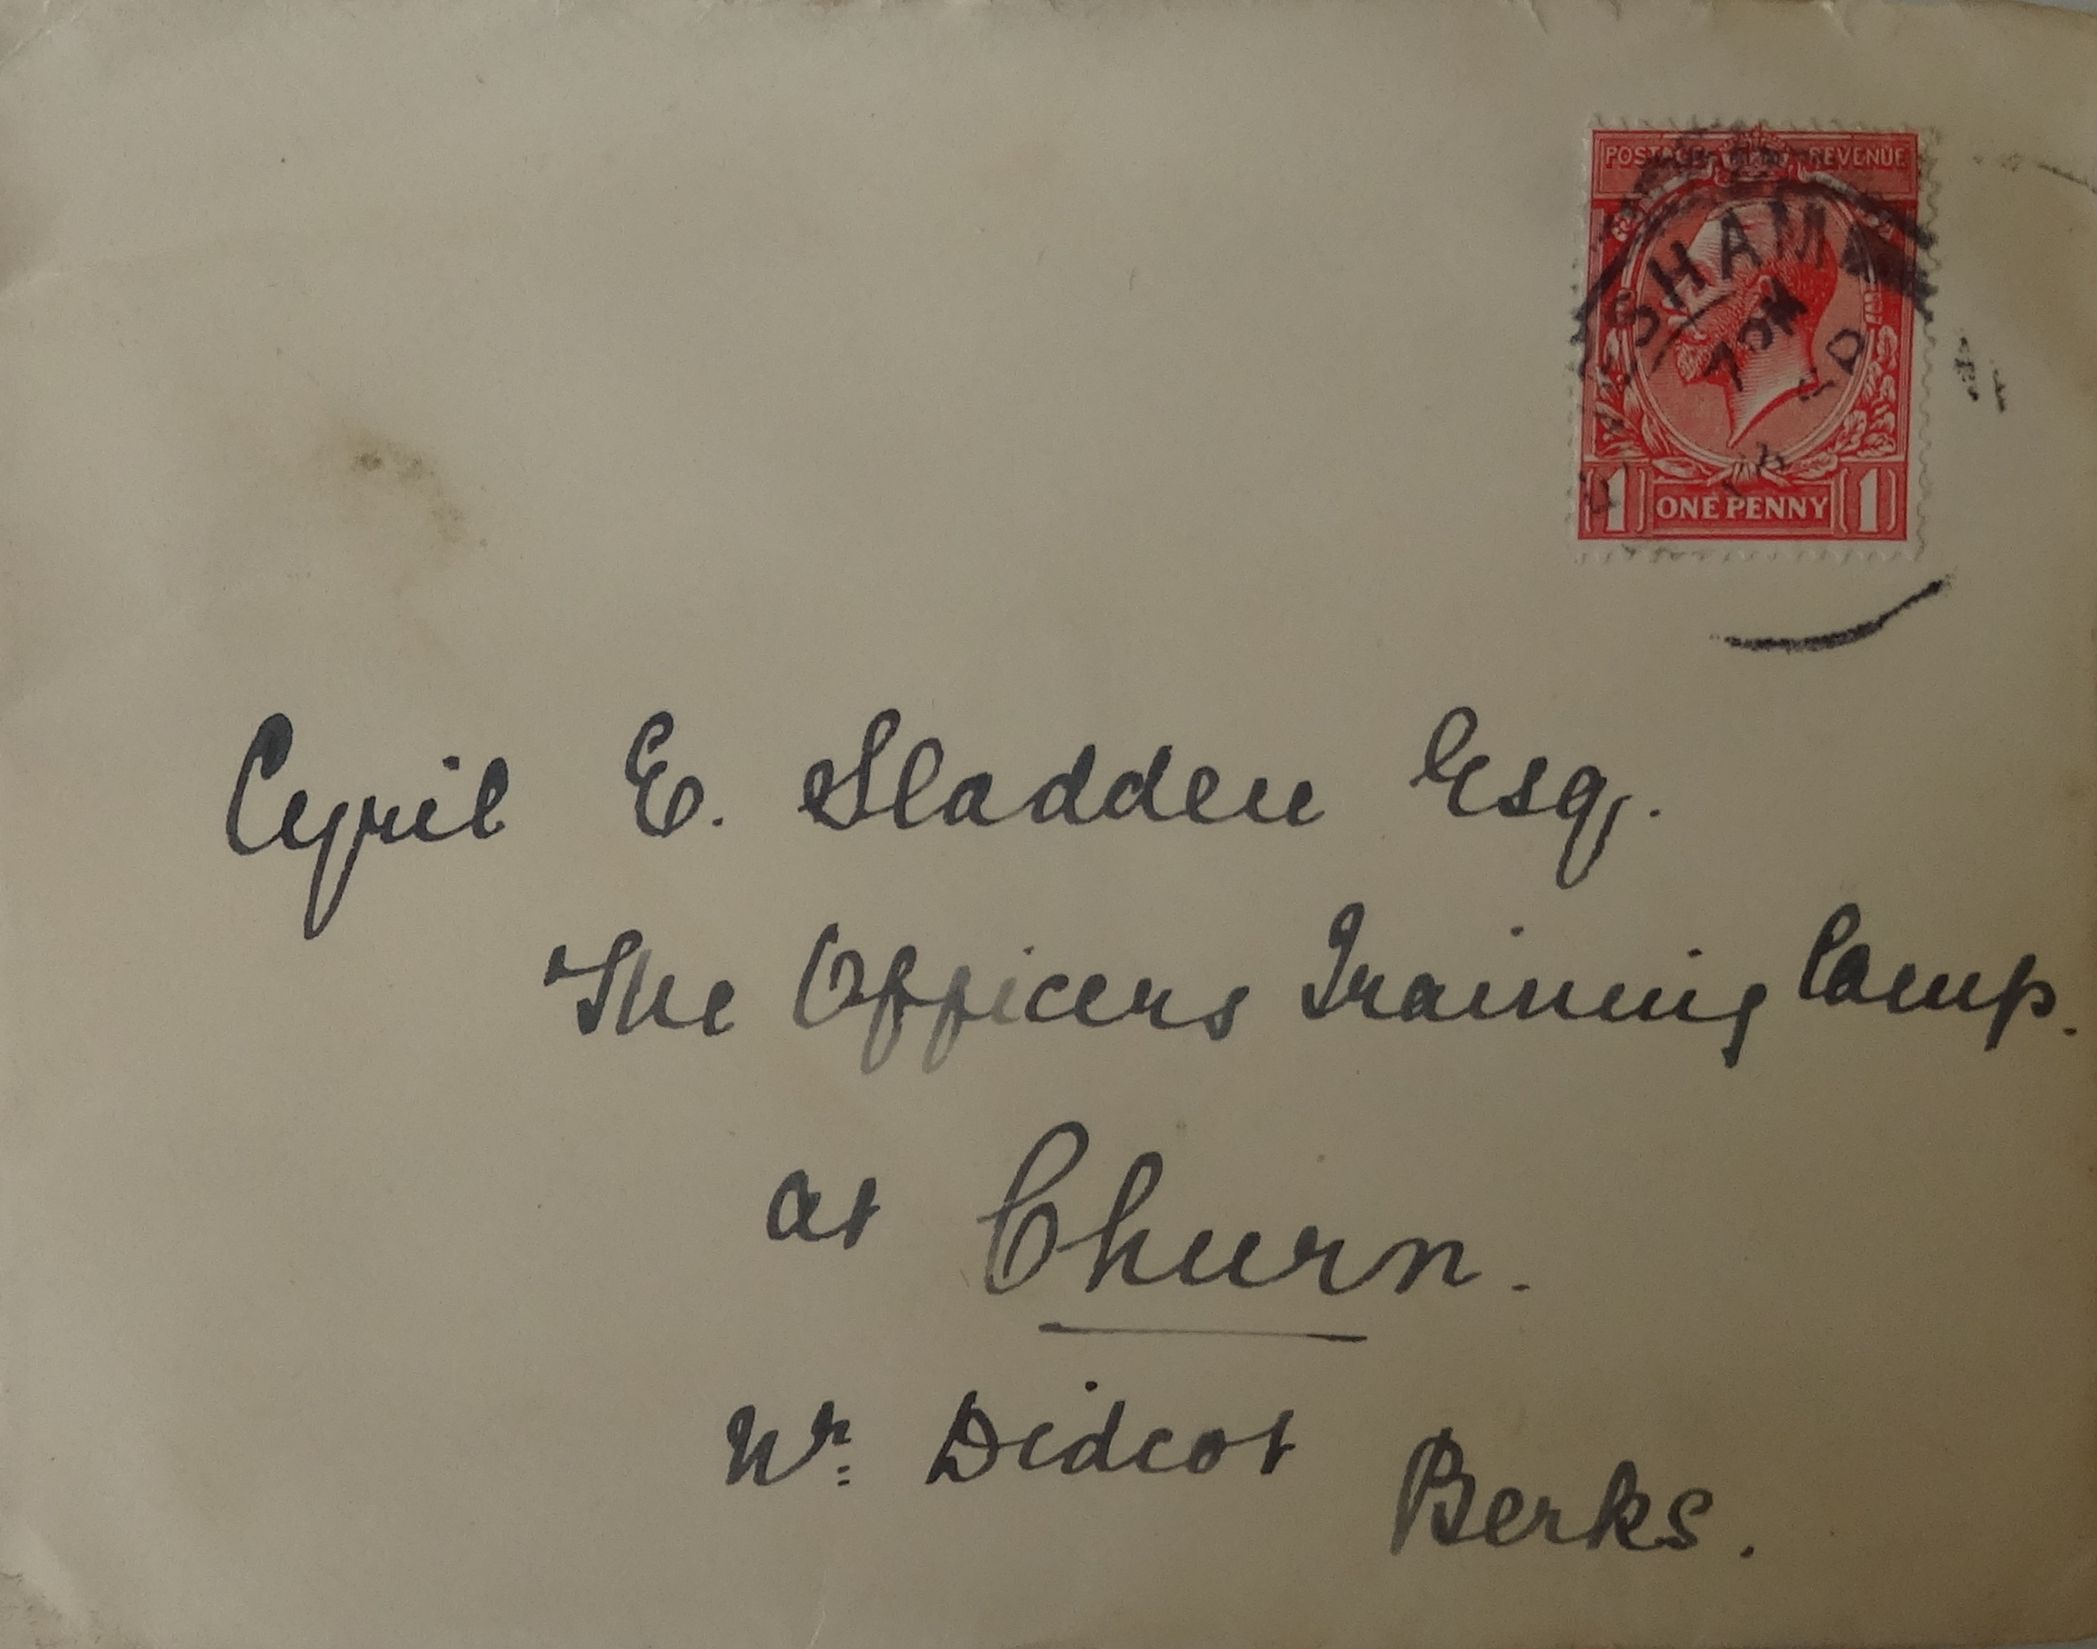 POSTAGE REVENUE
SHAM
1 ONE PENNY 1
Cyril E. Sladden Esq.
The Officers Training Camp.
at Churn.
Nr. Didcot
Berks.